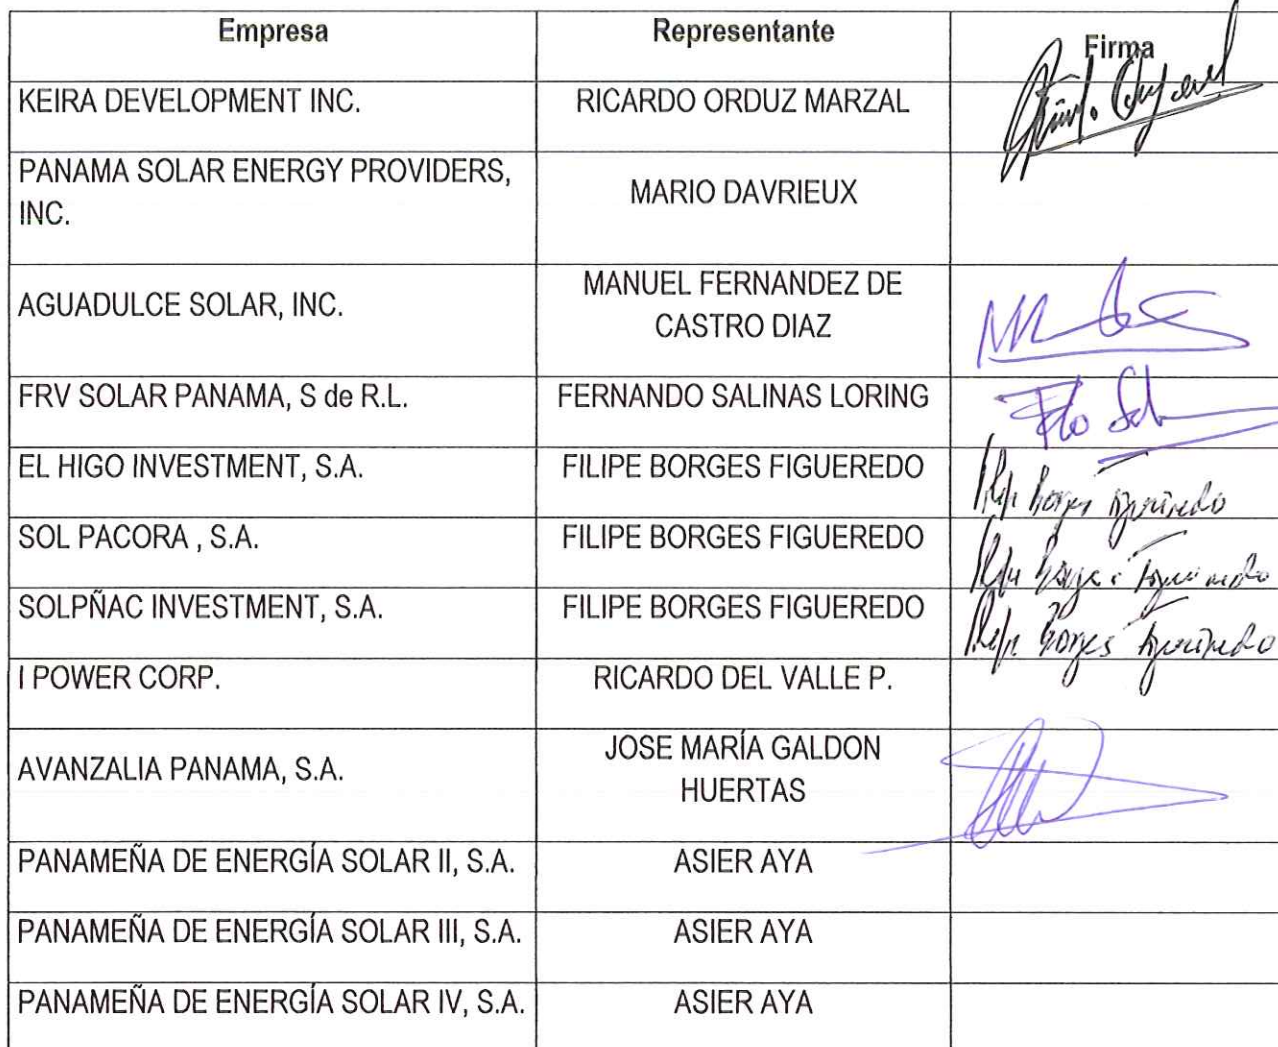 Empresa Representante Firma
KEIRA DEVELOPMENT INC. RICARDO ORDUZ MARZAL
PANAMA SOLAR ENERGY PROVIDERS,
INC. MARIO DAVRIEUX
AGUADULCE SOLAR, INC. MANUEL FERNANDEZ DE
CASTRO DIAZ
FRV SOLAR PANAMA, S de R.L. FERNANDO SALINAS LORING
EL HIGO INVESTMENT, S.A. FILIPE BORGES FIGUEREDO
SOL PACORA , S.A. FILIPE BORGES FIGUEREDO
SOLPÑAC INVESTMENT, S.A. FILIPE BORGES FIGUEREDO
I POWER CORP. RICARDO DEL VALLE P.
AVANZALIA PANAMA, S.A. JOSE MARÍA GALDON
HUERTAS
PANAMEÑA DE ENERGÍA SOLAR II, S.A. ASIER AYA
PANAMEÑA DE ENERGÍA SOLAR III, S.A. ASIER AYA
PANAMEÑA DE ENERGÍA SOLAR IV, S.A. ASIER AYA